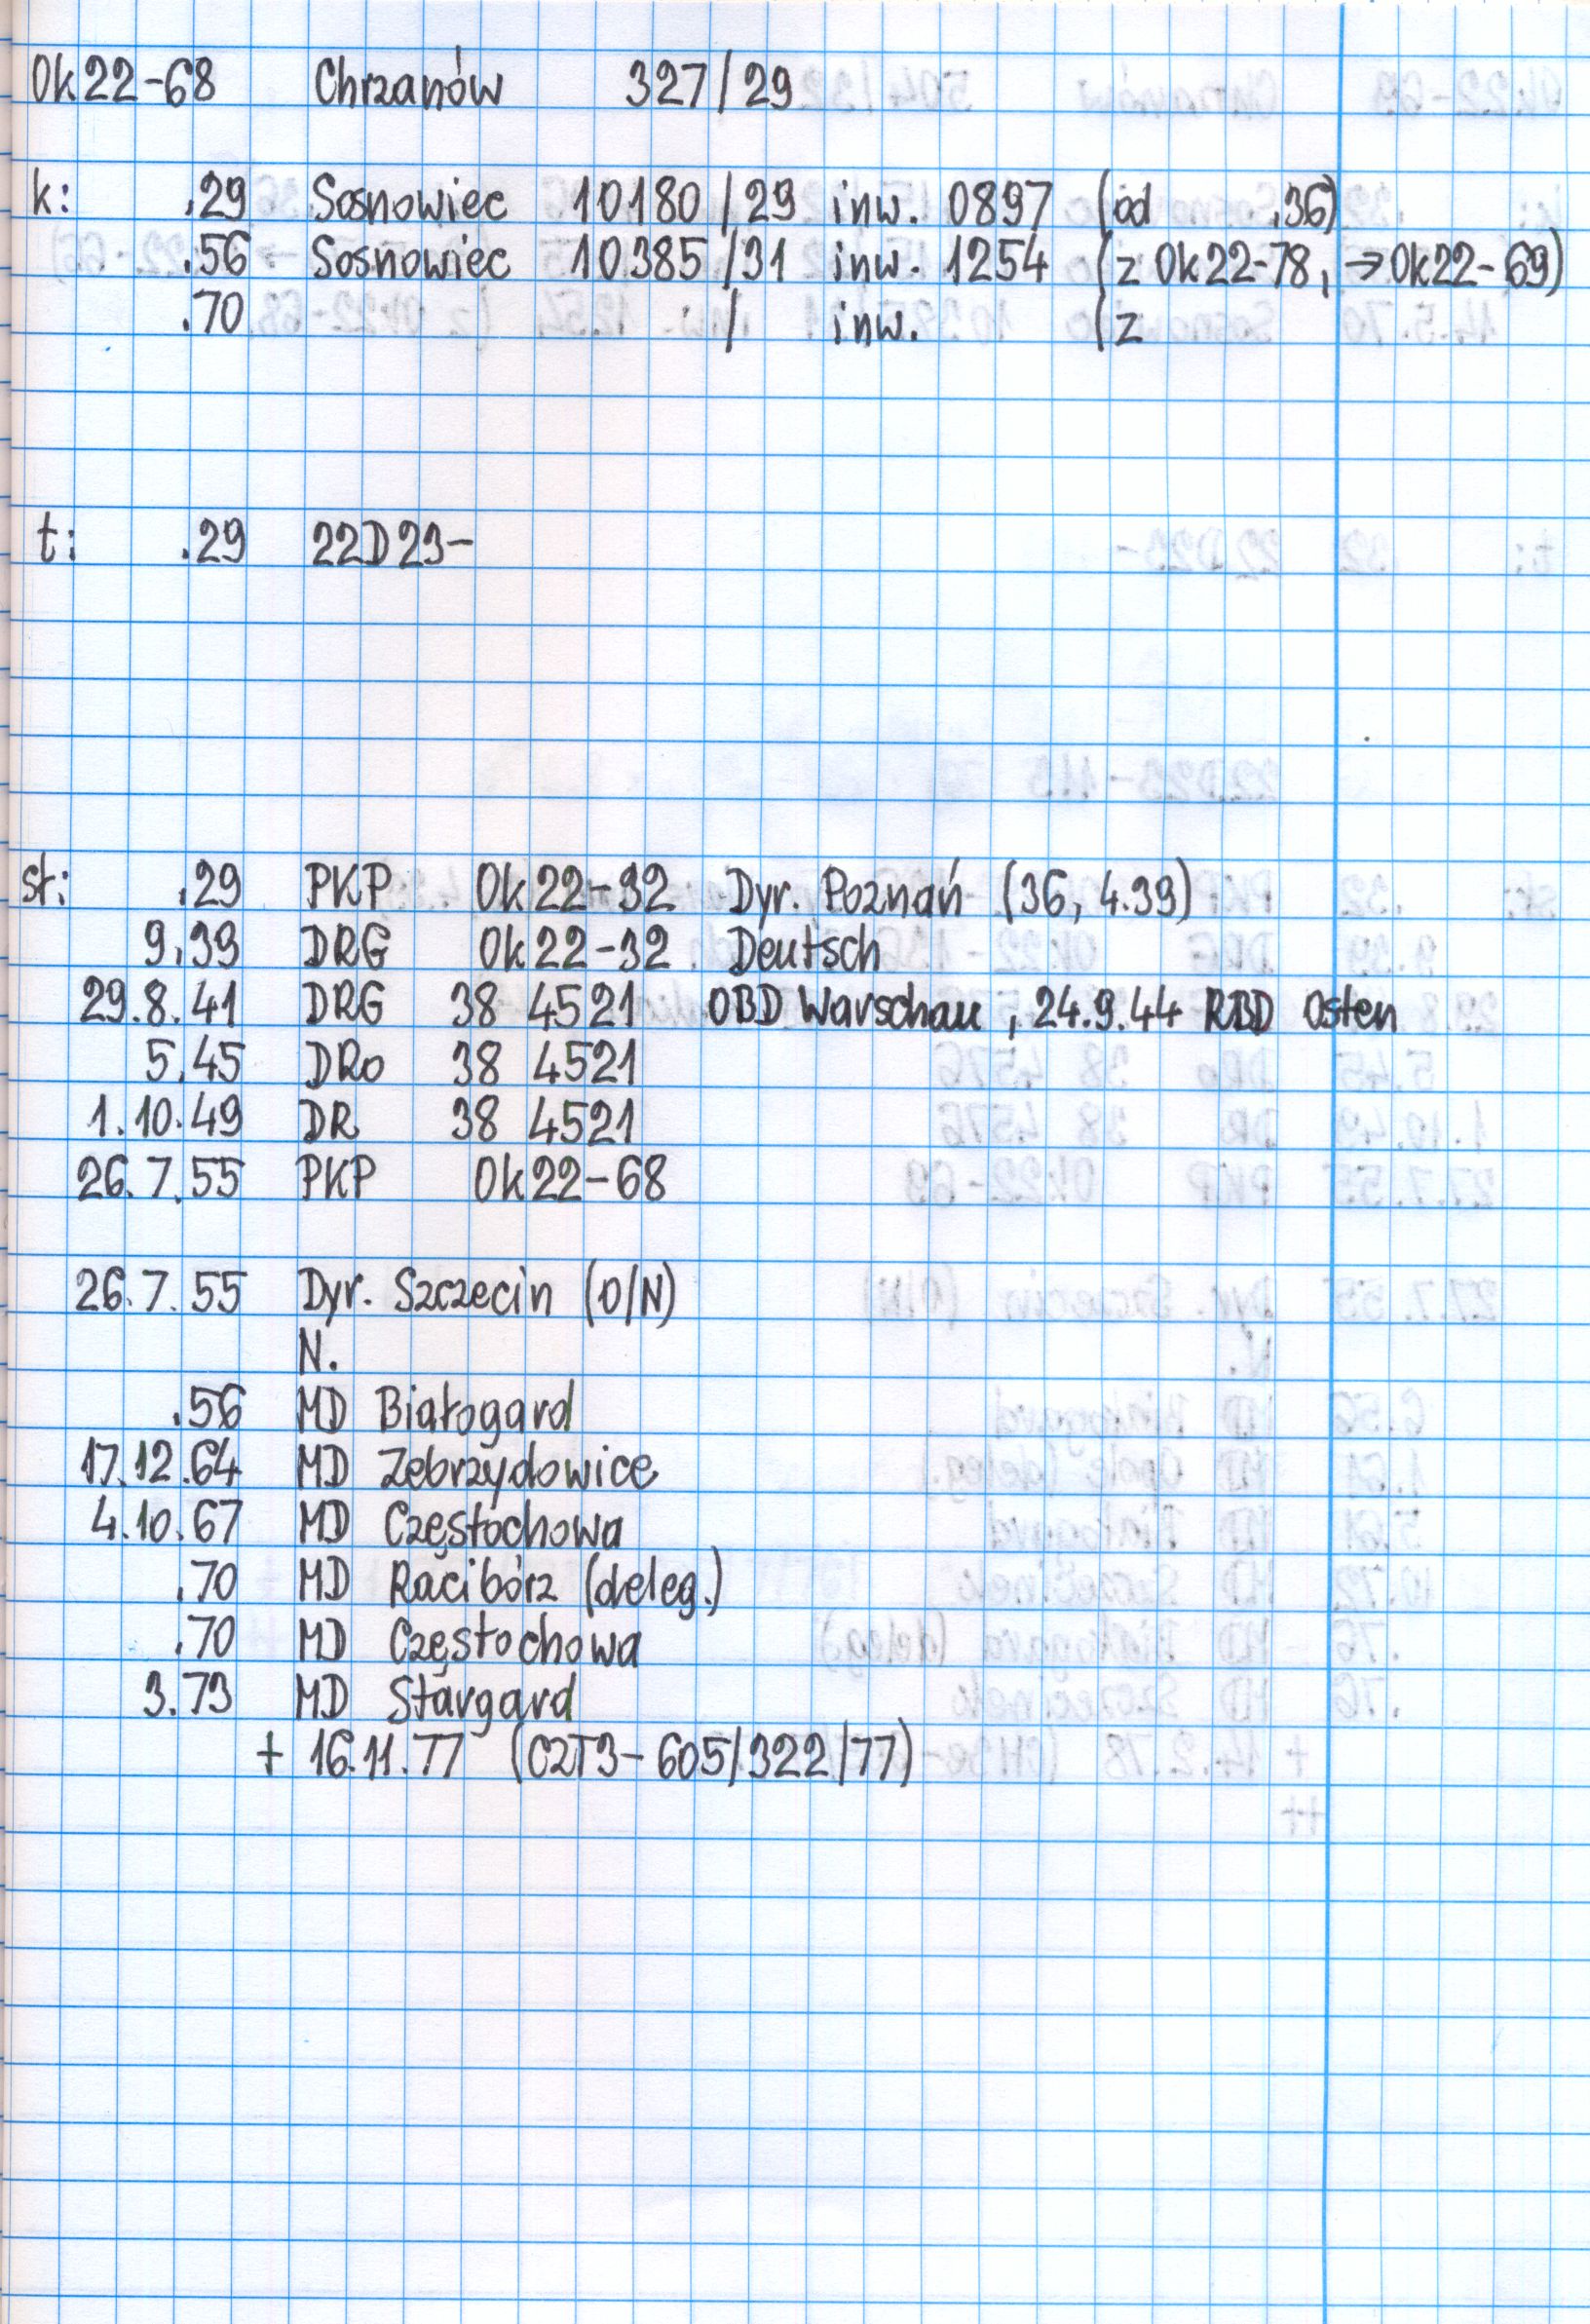 Ok22-68 Chrzanów 327/29
k: .29 Sosnowiec 10180/29 inw. 0897 (od .36)
.56 Sosnowiec 10385/31 inw. 1254 (z Ok22-78, → Ok22-69)
.70 / inw. (z
t: .29 22D23-
st: .29 PKP Ok22-32 Dyr. Poznań (36, 4.39)
9.39 DRG Ok22-32 Deutsch
29.8.41 DRG 38 4521 OBD Warschau, 24.9.44 RBD Osten
5.45 DRo 38 4521
1.10.49 DR 38 4521
26.7.55 PKP Ok22-68
26.7.55 Dyr. Szczecin (O/N)
N.
.56 MD Białogard
17.12.64 MD Zebrzydowice
4.10.67 MD Częstochowa
.70 MD Racibórz (deleg.)
.70 MD Częstochowa
3.73 MD Stargard
+ 16.11.77 (C2T3-605/322/77)